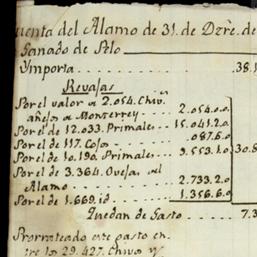 uenta del Alamo de 31. de Dzre. de
Ganado de Pelo
Ymporta 38.1
Revajas
Por el valor de 2.054. Chiv.
añejos de Monterrey 2.054.0.0
Por el de 12.033. Primales 15.041.2.0
Por el de 117. Cojos .087.6.0
Por el de 10.190. Primales 9.553.1.0 30.8
Por el de 3.364. Ovejas del
Alamo 2.733.2.0
Por el de 1.669. id. 1.356.6.0
Quedan de Gasto 7.3
Prorrateado este gasto en
tre los 29.427. Chivos y